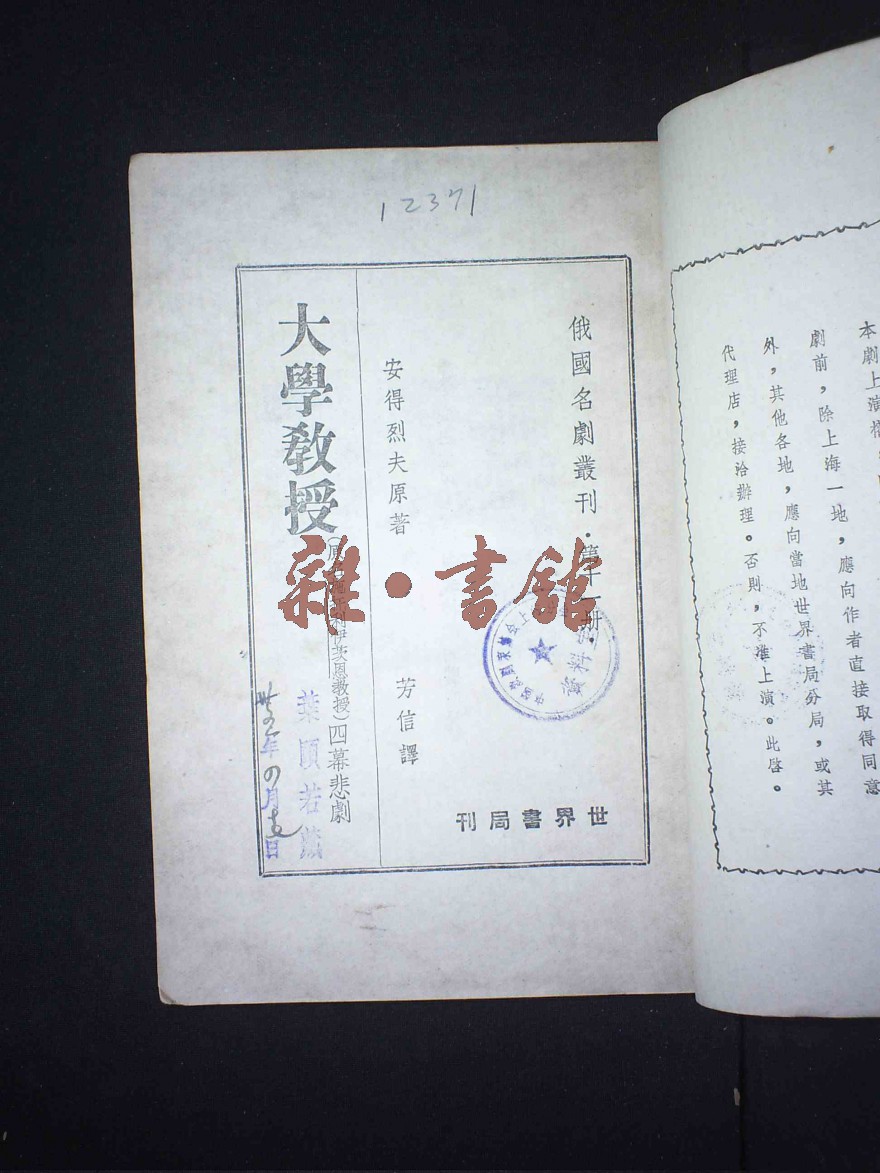 12371
俄國名劇叢刊·第十一册·
安得烈夫原著
芳信譯
大學教授
伊茨恩教授)四幕悲劇
世界書局刊
雜·書館
年 月 日
本劇上演
劇前,除上海一地,應向作者直接取得同意
外,其他各地,應向當地世界書局分局,或其
代理店,接洽辦理。否則,不准上演。此啓。